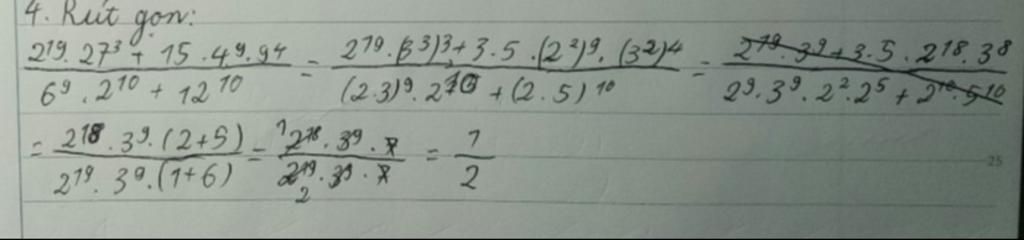 4. Rút gọn:
(2^19 . 27^3 + 15 . 4^9 . 9^4) / (6^9 . 2^10 + 12^10) = (2^19 . (3^3)^3 + 3 . 5 . (2^2)^9 . (3^2)^4) / ((2.3)^9 . 2^10 + (2 . 5)^10) = (2^19 . 3^9 + 3 . 5 . 2^18 . 3^8) / (2^9 . 3^9 . 2^2 . 2^5 + 2^10 . 5^10)
= (2^18 . 3^9 . (2+5)) / (2^19 . 3^9 . (1+6)) = (1 2^18 . 3^9 . 7) / (2^19 . 3^9 . 7 2) = 1 / 2
25